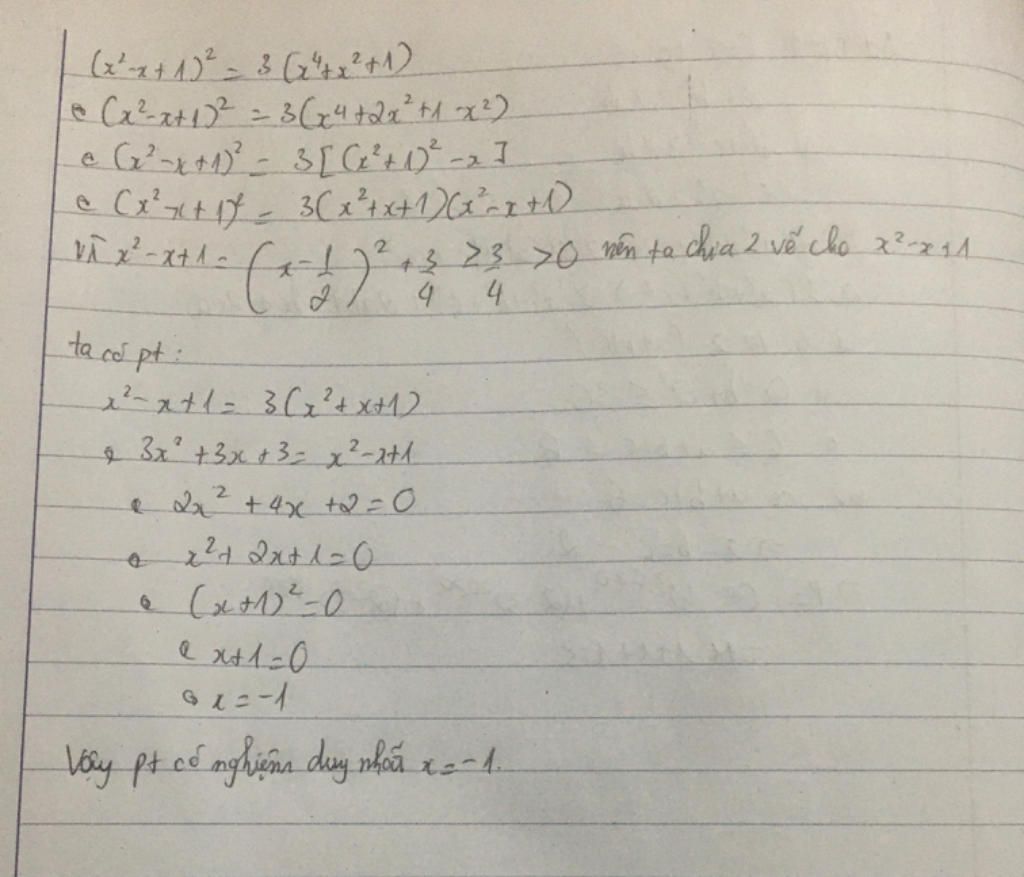 (x²-x+1)² = 3(x⁴+x²+1)
⇔ (x²-x+1)² = 3(x⁴+2x²+1-x²)
⇔ (x²-x+1)² = 3[(x²+1)²-x]
⇔ (x²-x+1)² = 3(x²+x+1)(x²-x+1)
Vì x²-x+1 = (x-1/2)² + 3/4 ≥ 3/4 > 0 nên ta chia 2 vế cho x²-x+1
ta có pt:
x²-x+1 = 3(x²+x+1)
⇔ 3x²+3x+3 = x²-x+1
⇔ 2x²+4x+2=0
⇔ x²+2x+1=0
⇔ (x+1)²=0
⇔ x+1=0
⇔ x=-1
Vậy pt có nghiệm duy nhất x=-1.